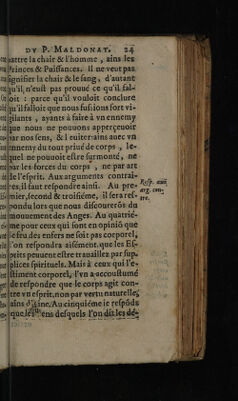 DV P. MALDONAT. 24
battre la chair & l'homme, ains les
Princes & Puissances. Il ne veut pas
signifier la chair & le sang, d'autant
qu'il n'eust pas prouué ce qu'il fal-
loit : parce qu'il vouloit conclure
qu'il falloit que nous fussions fort vi-
gilants, ayants à faire à vn ennemy
que nous ne pouuons apperçeuoir
par nos sens, & l'euiter: ains auec vn
ennemy du tout priué de corps, le-
quel ne pouuoit estre surmonté, ne
par les forces du corps, ne par art
de l'esprit. Aux arguments contrai-
res, il faut respondre ainsi. Au pre-
mier, second & troisiéme, il sera res-
pondu lors que nous discourerōs du
mouuement des Anges. Au quatrié-
me pour ceux qui sont en opiniō que
le feu des enfers ne soit pas corporel,
l'on respondra aisément, que les Es-
prits peuuent estre trauaillez par sup-
plices spirituels. Mais à ceux qui l'e-
stiment corporel, l'vn a accoustumé
de respondre que le corps agit con-
tre vn esprit, non par vertu naturelle,
ains diuine. Au cinquiéme ie respōds
que les sens desquels l'on dit les dé-
Resp. aux
arg. con-
tre.